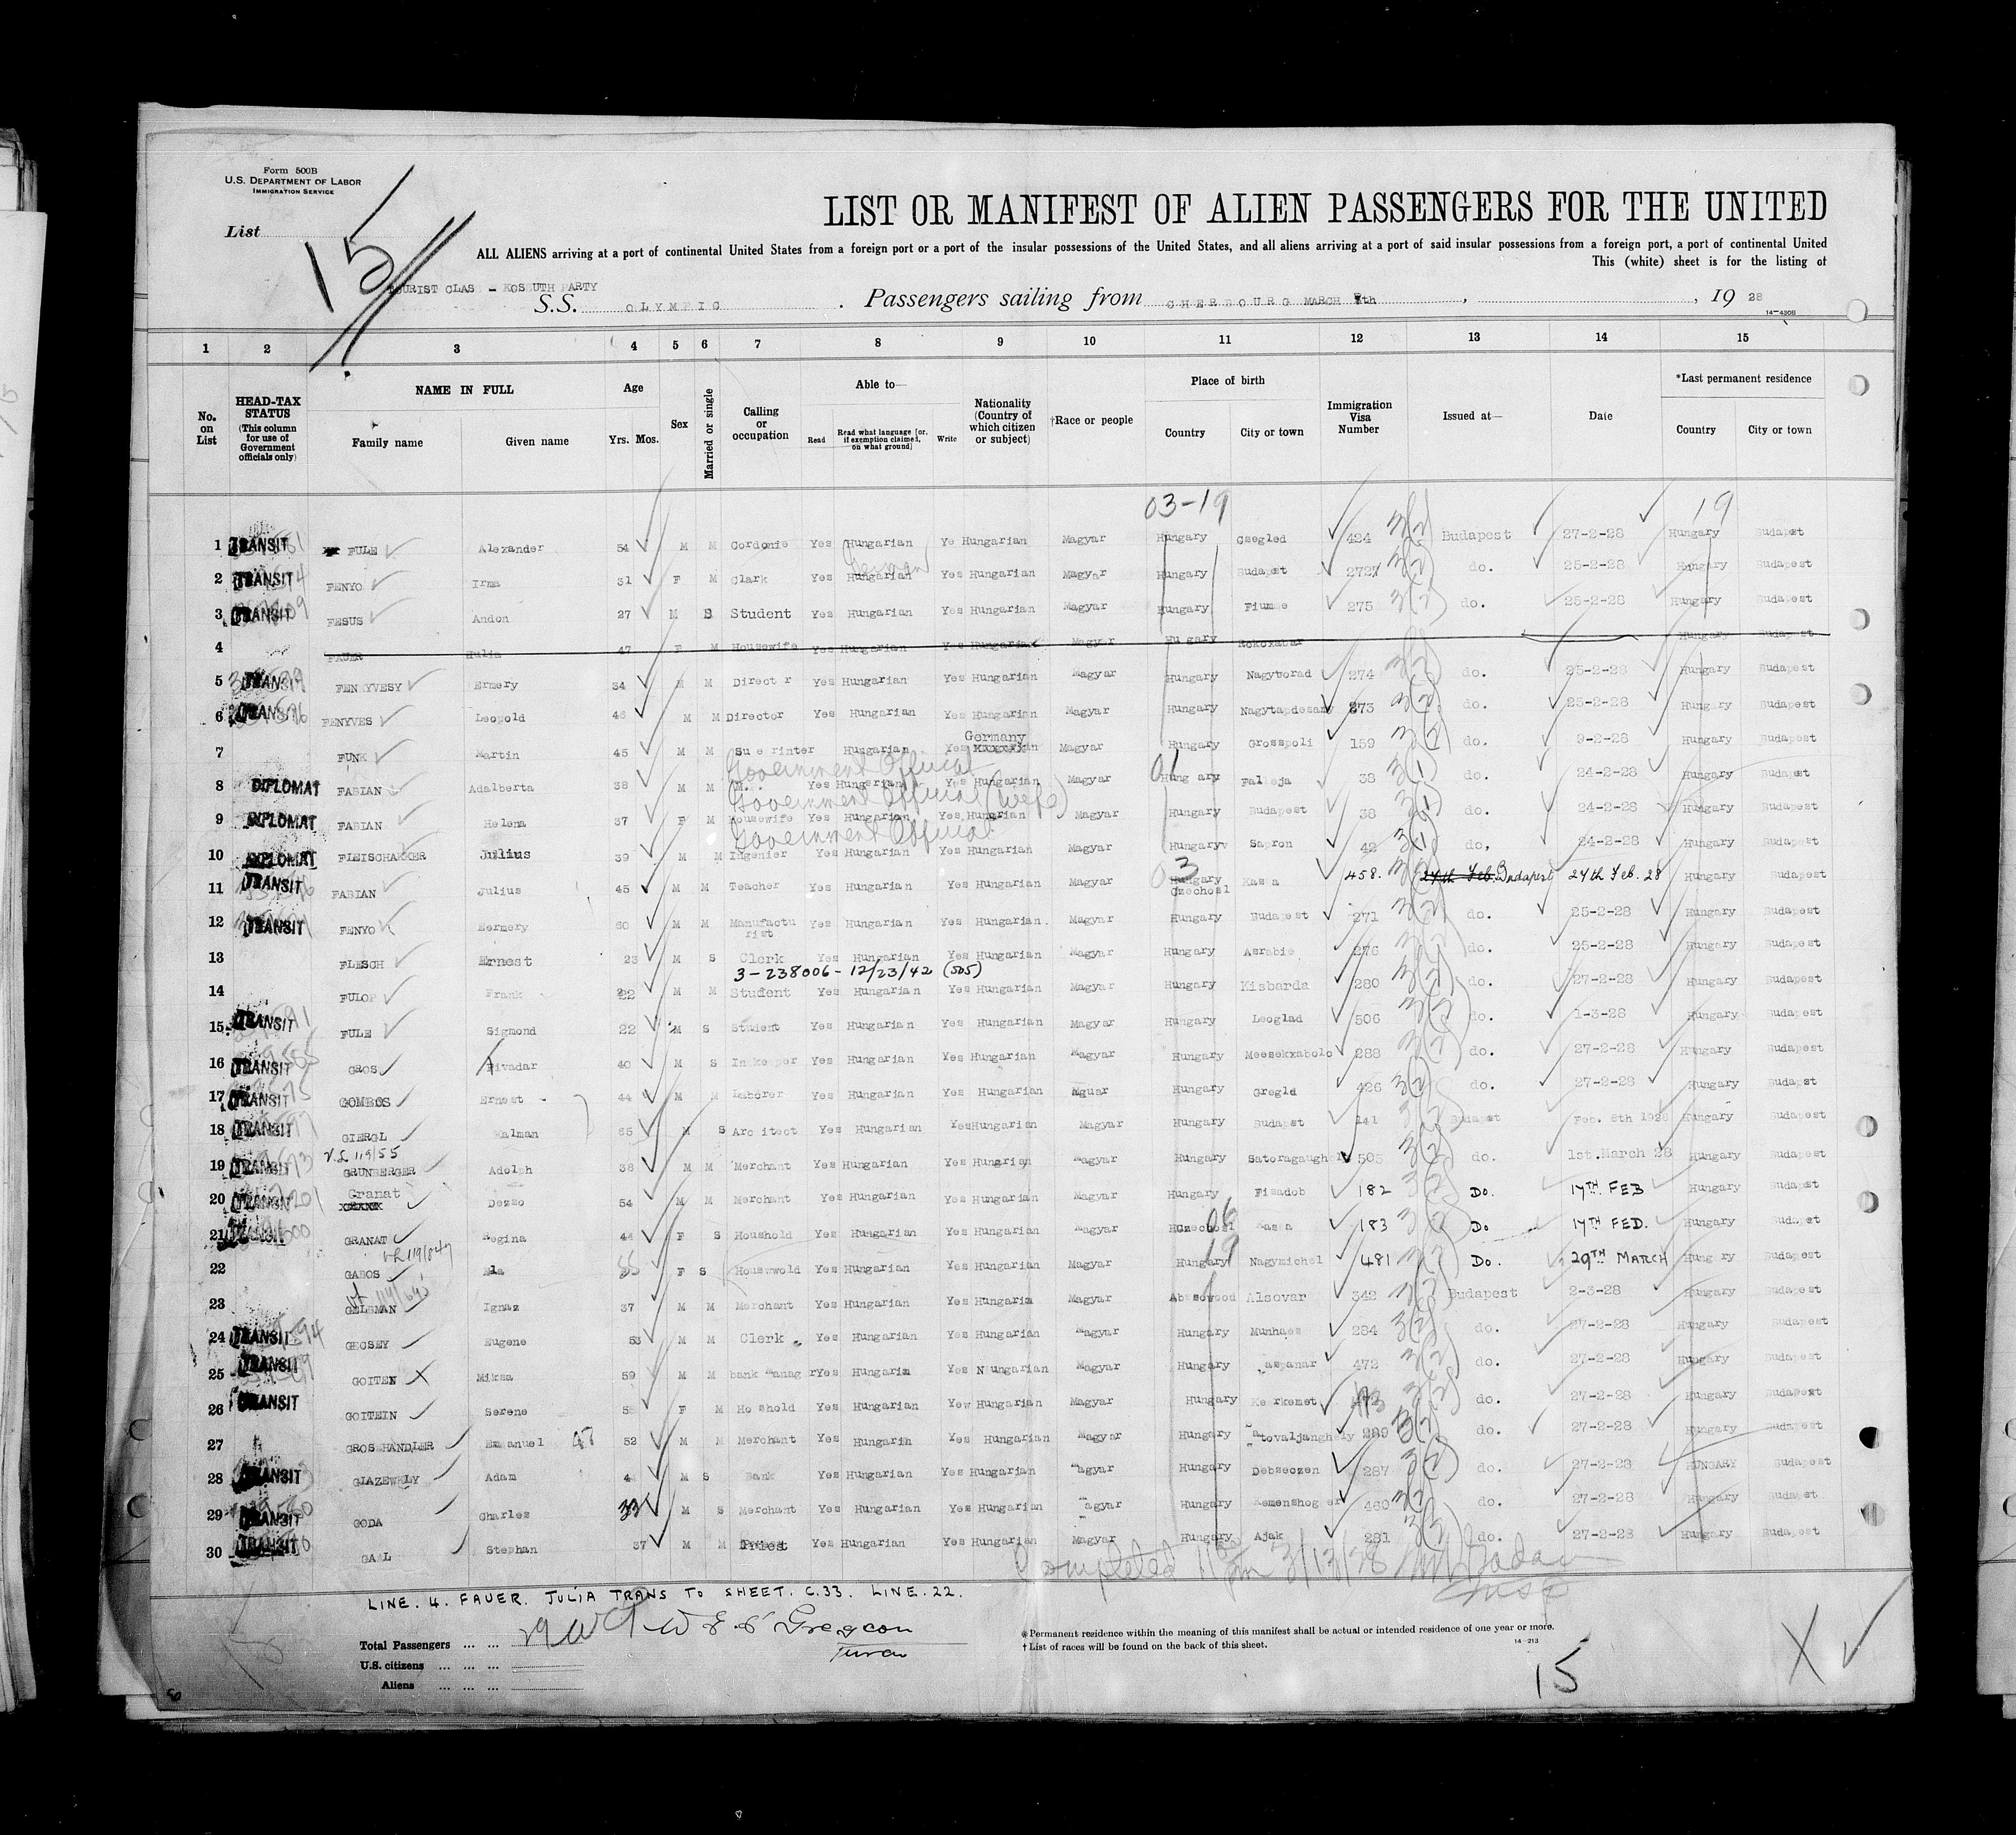 Form 500B
U.S. DEPARTMENT OF LABOR
IMMIGRATION SERVICE
List
15
LIST OR MANIFEST OF ALIEN PASSENGERS FOR THE UNITED
ALL ALIENS arriving at a port of continental United States from a foreign port or a port of the insular possessions of the United States, and all aliens arriving at a port of said insular possessions from a foreign port, a port of continental United
This (white) sheet is for the listing of
TOURIST CLAS - KOSSUTH PARTY
S.S. OLYMPIC. Passengers sailing from CHERBOURG MARCH 7th, , 19 28
14-430B
1 2 3 4 5 6 7 8 9 10 11 12 13 14 15
No. on List
HEAD-TAX STATUS (This column for use of Government officials only)
NAME IN FULL
Family name Given name
Age
Yrs. Mos.
Sex
Married or single
Calling or occupation
Able to—
Read Read what language [or, if exemption claimed, on what ground] Write
Nationality (Country of which citizen or subject)
†Race or people
Place of birth
Country City or town
Immigration Visa Number
Issued at—
Date
*Last permanent residence
Country City or town
03-19 19
1 TRANSIT FULE Alexander 54 M M Cordonie Yes Hungarian Ye Hungarian Magyar Hungary Czegled 424 3(2) Budapest 27-2-28 Hungary Budapest
German
2 TRANSIT FENYO Irma 31 F M Clark Yes Hungarian Yes Hungarian Magyar Hungary Budapest 272 3(2) do. 25-2-28 Hungary Budapest
3 TRANSIT FESUS Andon 27 M S Student Yes Hungarian Yes Hungarian Magyar Hungary Fiumme 275 3(2) do. 25-2-28 Hungary Budapest
4 FAUER Julia 47 F M Housewife Yes Hungarian Yes Hungarian Magyar Hu gary Hungary Budapest
5 TRANSIT FENYVESY Ermery 34 M M Direct r Yes Hungarian Yes Hungarian Magyar Hungary Nagytorad 274 3(2) do. 25-2-28 Hungary Budapest
6 TRANSIT FENYVES Leopold 46 M M Director Yes Hungarian Yes Hungarian Magyar Hungary 273 3(2) do. 25-2-28 Hungary Budapest
Germany
7 FUNK Martin 45 M M Su e rinter Hungarian Yes Magyar Hungary Grosspoli 159 3(2) do. 9-2-28 Hungary Budapest
Government Official
8 DIPLOMAT FABIAN Adalberta 38 M M Yes Hungarian Yes Hungarian Magyar 01 Hung ary Falleja 38 3(1) do. 24-2-28 Hungary Budapest
Government Official (Wife)
9 DIPLOMAT FABIAN Helena 37 F M Housewife Yes Hungarian Yes Hungarian Magyar Hungary Budapest 38 3(1) do. 24-2-28 Hungary Budapest
Government Official
10 DIPLOMAT FLEISCHAKKER Julius 39 M M Ingenier Yes Hungarian Yes Hungarian Magyar Hungaryv Sapron 42 3(1) do, 24-2-28 Hungary Budapest
11 TRANSIT FABIAN Julius 45 M M Teacher Yes Hungarian Yes Hungarian Magyar 03 Hungary Czechosl Kassa 458. 3(2) 24th Feb. Budapest 24th Feb. 28 Hungary Budapest
12 TRANSIT FENYO Eermery 60 M M Manufactu rist Yes Hungarian Yes Hungarian. Magyar Hungary Budapest 271 3(2) do. 25-2-28 Hungary Budapest
13 FLESCH Ernest 23 M S Clerk Yes Hungarian Yes Hungarian Magyar Hungary Asrabie 276 3(2) do. 25-2-28 Hungary Budapest
3-238006-12/23/42 (505)
14 FULOP Frank 22 M M Student Yes Hungarian Yes Hungarian Magyar Hungary Kisbarda 280 3(2) do. 27-2-28 Hungary Budapest
15 TRANSIT FULE Sigmond 22 M S Student Yes Hungarian Yes Hungarian Magyar Hungary Leoglad 506 3(2) do. 1-3-28 Hungary Budapest
16 TRANSIT GROS Tivadar 40 M S In keeper Yes Hungarian Yes Hungarian Magyar Hungary Meesekxabolo 288 3(2) do. 27-2-28 Hungary Budapest
17 TRANSIT GOMBOS Ernest 44 M M Laborer Yes Hungarian Yes Hungarian Maguar Hungary Gregld 426 3(2) do. 27-2-28 Hungary Budapest
18 TRANSIT GIERGL Kalman 65 M S Arc itect Yes Hungarian Yes Hungarian Magyar Hungary Budapest 141 3(2) Budapest Feb. 8th 1928 Hungary Budapest
V.L 119/55
19 TRANSIT GRUNBERGER Adolph 38 M M Merchant Yes Hungarian Yes Hungarian Magyar Hungary 505 3(2) do. 1st.March 28 Hungary Budapest
Granat
20 TRANSIT Dezso 54 M M Merchant Yes Hungarian Yes Hungarian Magyar Hungary Fisadob 182 3(2) Do. 17TH FEB Hungary Budapest
21 GRANAT Regina 44 F S Houshold Yes Hungarian Yes Hungarian Magyar 06 Czechosl Kassa 183 3(2) Do 17TH FEB. Hungary Budapest
22 GABOS Ela 55 F S Houswwold Yes Hungarian Yes Hungarian Magyar 19 Hungary Nagymichel 481 3(2) Do. 29TH MARCH Hung ry Budapest
23 GELBMAN Ignaz 37 M M Merchant Yes Hungarian Yes Hungaria Magyar Alsovar 342 3(2) Budapest 2-3-28 Hungary Budapest
24 TRANSIT GEOSEY Eugene 53 M M Clerk Yes Hungarian Yes Hungarian Magyar Hungary Munhaes 284 3(2) do. 27-2-28 Hungary Budapest
25 TRANSIT GOITEN Miksa 59 M M bank manag r Yes Hungaria Yes Hungarian Magyar Hungary aspanar 472 3(2) do. 27-2-28 Hungary Budapest
26 TRANSIT GOITEIN Serene 55 F M Ho shold Yes Hungarian Yew Hungarian Magyar Hungary Ke rkemet 473 3(2) do. 27-2-28 Hungary Budapest
27 GROSSHANDLER Emmanuel 47 52 M M Merchant Yes Hungarin Yes Hungarian Magyar Hungary 289 3(2) do. 27-2-28 Hungary Budapest
28 TRANSIT Adam 4 M S Bank Yes Hungarian Yes Hungarian agyar Hungary Debseczen 287 3(2) do. 27-2-28 HUNGARY Budapest
29 TRANSIT GODA Charles 33 M S Merchant Yes Hungarian Yes Hungarian agyar Hungary Kemenshog er 460 3(2) do. 27-2-28 Hungary Budapest
30 TRANSIT GAAL Stephan 37 M M Priest Yes Hungarian Yes Hungarian Magyar Hungary Ajak 281 3(2) do. 27-2-28 Hungary Budapest
Completed 3/13/28
LINE. 4. FAUER. JULIA TRANS TO SHEET. C.33. LINE. 22.
Total Passengers ... ... 29
U.S. citizens ... ... ...
Aliens ... ... ...
*Permanent residence within the meaning of this manifest shall be actual or intended residence of one year or more.
†List of races will be found on the back of this sheet.
14-213
15
X